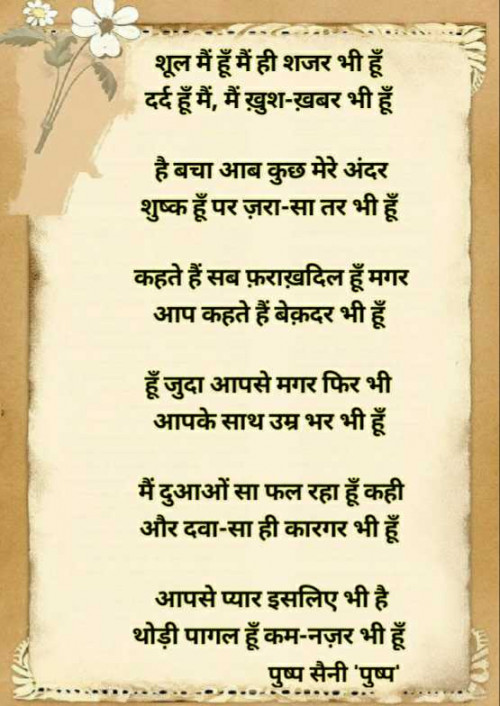 शूल मैं हूँ मैं ही शजर भी हूँ
दर्द हूँ मैं, मैं ख़ुश-ख़बर भी हूँ
है बचा आब कुछ मेरे अंदर
शुष्क हूँ पर ज़रा-सा तर भी हूँ
कहते हैं सब फ़राख़दिल हूँ मगर
आप कहते हैं बेक़दर भी हूँ
हूँ जुदा आपसे मगर फिर भी
आपके साथ उम्र भर भी हूँ
मैं दुआओं सा फल रहा हूँ कही
और दवा-सा ही कारगर भी हूँ
आपसे प्यार इसलिए भी है
थोड़ी पागल हूँ कम-नज़र भी हूँ
पुष्प सैनी 'पुष्प'